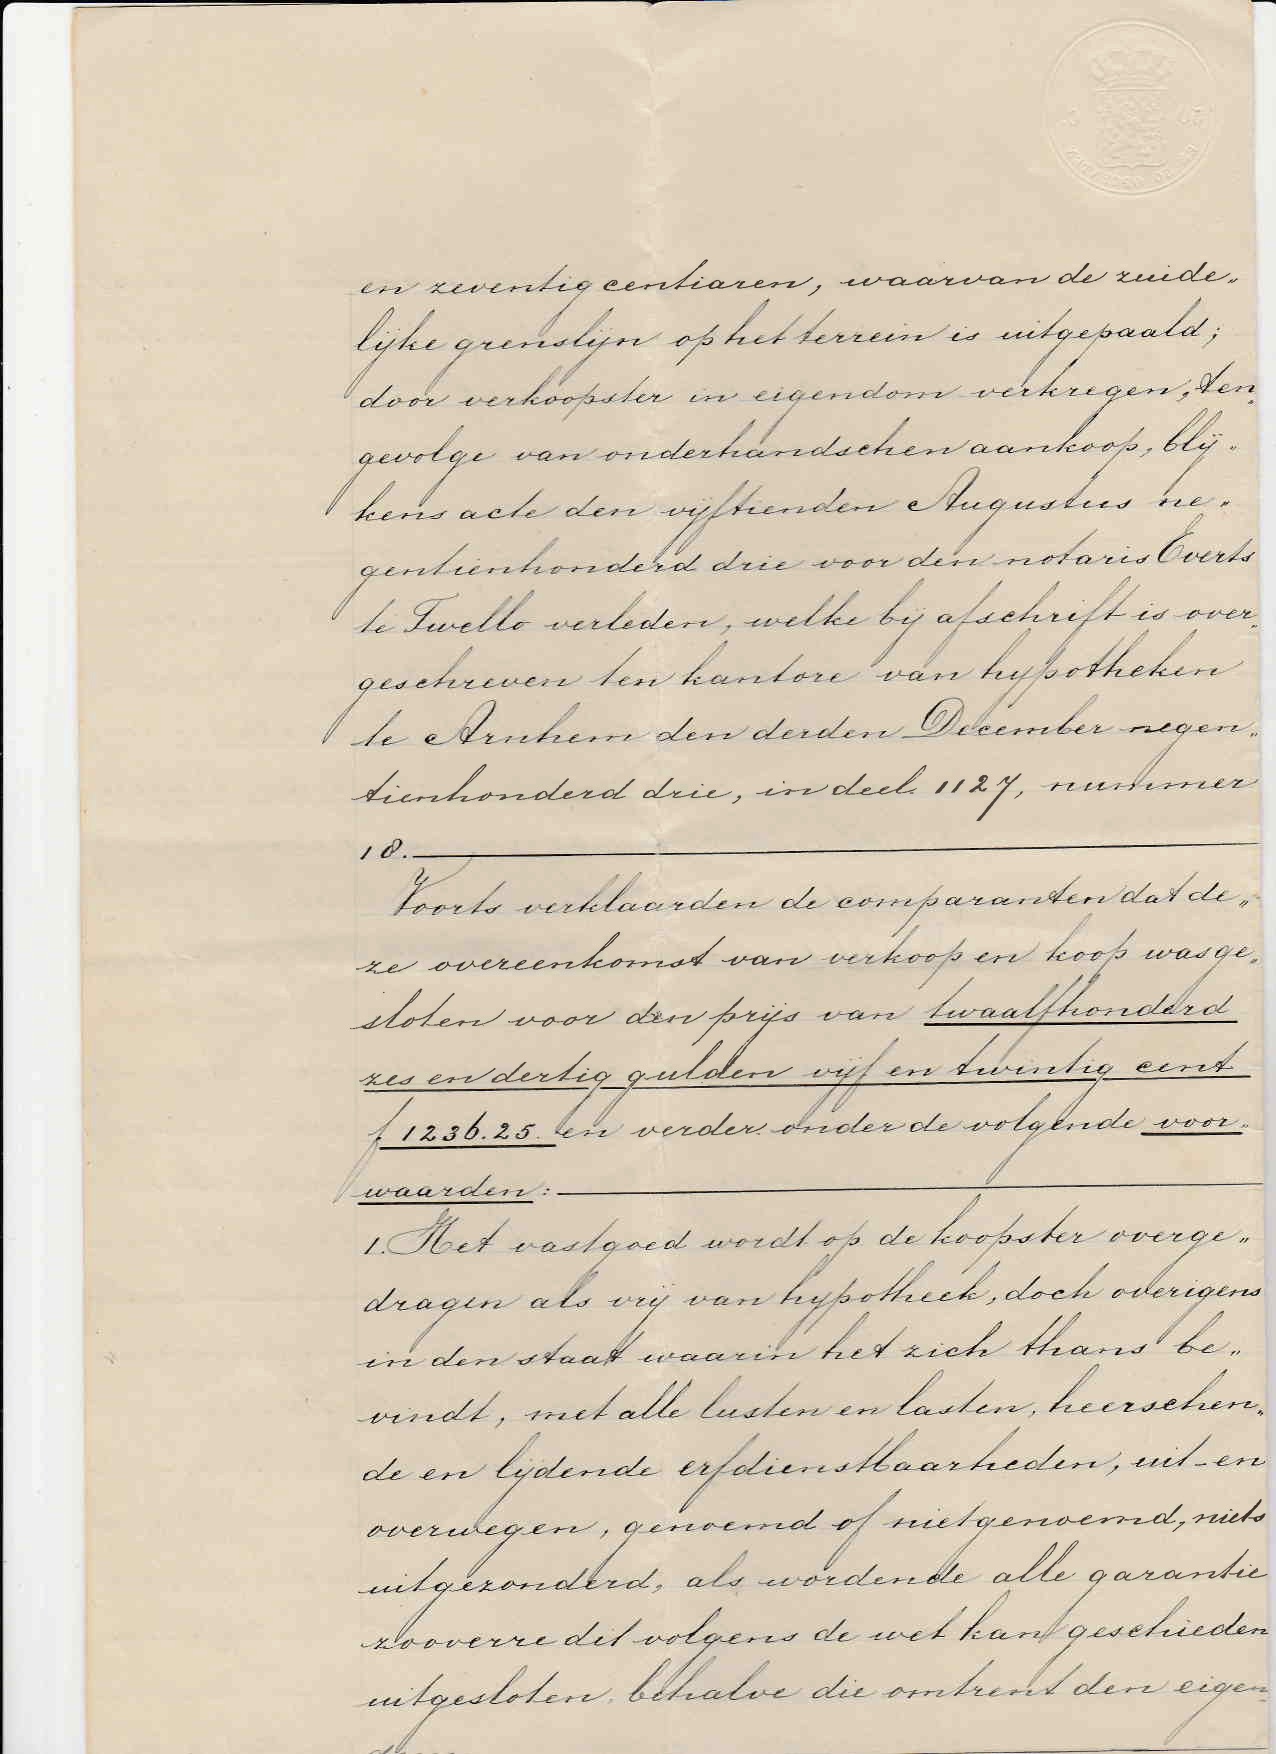 en zeventig centiaren, waarvan de zuide„
lijke grenslijn op het terrein is uitgepaald;
door verkoopster in eigendom verkregen, ten„
gevolge van onderhandschen aankoop, blij„
kens acte den vijftienden Augustus ne„
gentienhonderd drie voor den notaris Everts
te Twello verleden, welke bij afschrift is over„
geschreven ten kantore van hypotheken
te Arnhem den derden December negen„
tienhonderd drie, in deel 1127, nummer
18.
Voorts verklaarden de comparanten dat de„
ze overeenkomst van verkoop en koop was ge„
sloten voor den prijs van twaalfhonderd
zes en dertig gulden vijf en twintig cent
f 1236.25 en verder onder de volgende voor„
waarden:
1. Het vastgoed wordt op de koopster overge„
dragen als vrij van hypotheek, doch overigens
in den staat waarin het zich thans be„
vindt, met alle lusten en lasten, heerschen„
de en lijdende erfdienstbaarheden, uit- en
overwegen, genoemd of niet genoemd, niets
uitgezonderd, als wordende alle garantie
zooverre dit volgens de wet kan geschieden
uitgesloten, behalve die omtrent den eigen„